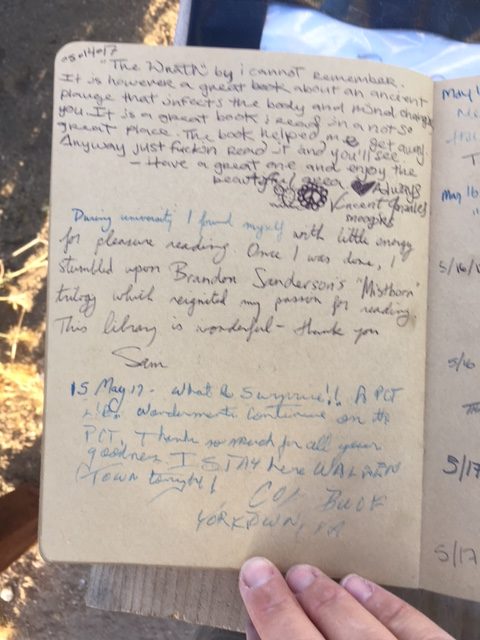 05.14.17
"The Wraith" by i cannot remember.
It is however a great book about an ancient
plauge that infects the body and mind
you. It is a great book i read in a not so
great place. The book helped me get away
Anyway just fuckin Read it and you'll see
- Have a great one and enjoy the
beautiful area ♥ Always
Vincent
During university I found myself with little energy
for pleasure reading. Once I was done, I
stumbled upon Brandon Sanderson's "Mistborn"
trilogy which reignited my passion for reading.
This library is wonderful - thank you
Sam
15 May 17 - What a Surprise!! A PCT
Wonderments Continue on the
PCT. Thanks so much for all your
goodness I STAY here
Town tonight!
Buck
YORKTOWN, VA
May 1
May 16
5/16/1
5/16
5/17
5/17